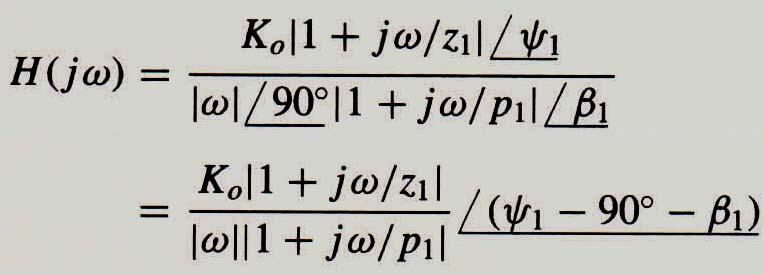 H(jω) = K_o|1 + jω/z_1| /ψ_1 / |ω| /90° |1 + jω/p_1| /β_1
= K_o|1 + jω/z_1| / |ω||1 + jω/p_1| /(ψ_1 − 90° − β_1)